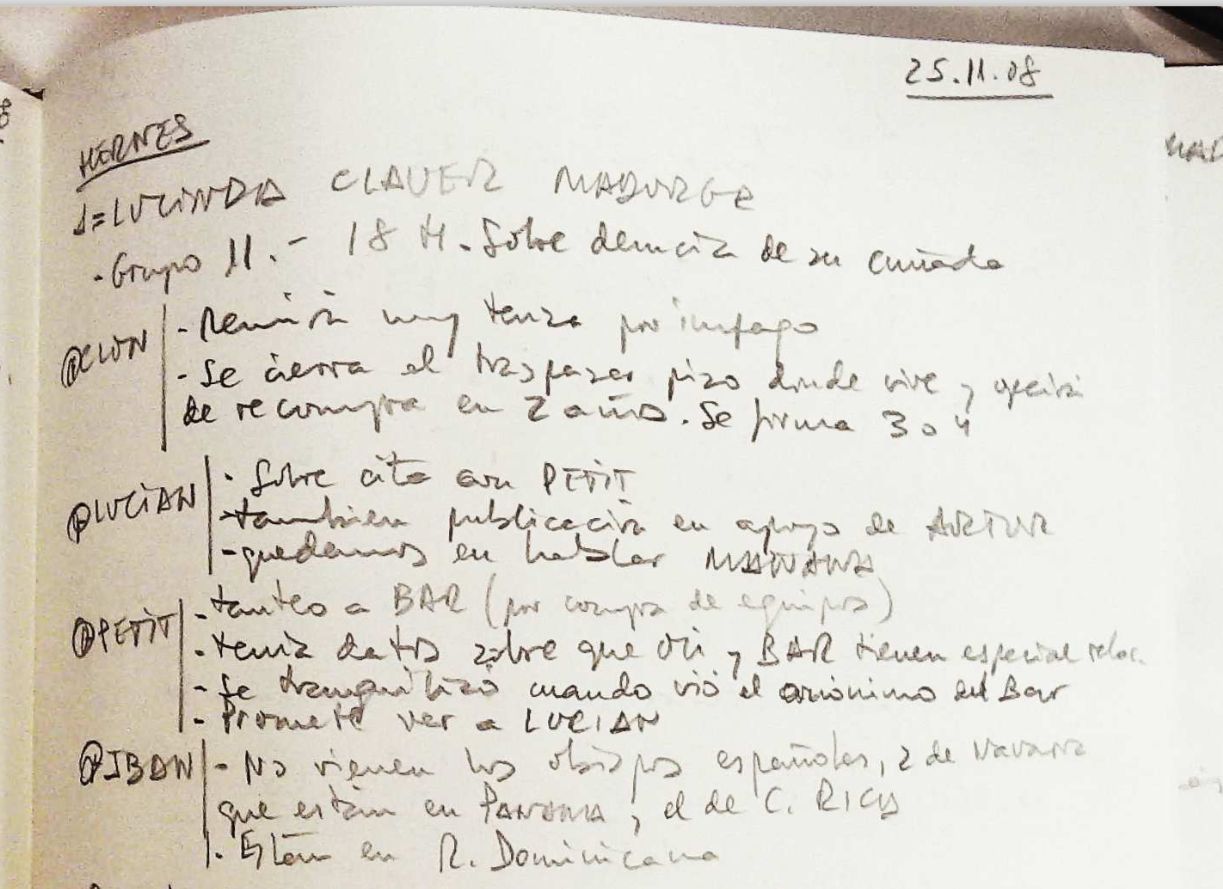 25.11.08
HERMES
1=LUCINDA CLAVER MADURGA
- Grupo 11.- 18 H. Sobre denuncia de su cuñada
@CLON - Reunión muy tensa por impago
- Se cierra el traspasar piso donde vive y opción
de recompra en 2 años. Se firma 3 o 4
@LUCIAN - Sobre cita con PETIT
- también publicación en apoyo de ARTUR
- quedamos en hablar MAÑANA
@PETIT - tanteo a BAR (por compra de equipos)
- tenía datos sobre que Oli y BAR tienen especial relac.
- Se tranquilizó cuando vió el anónimo del Bar
- Promete ver a LUCIAN
@IBAN - No vienen los obispos españoles, 2 de Navarra
que están en PANAMA, el de C. RICA
- Están en R. Dominicana